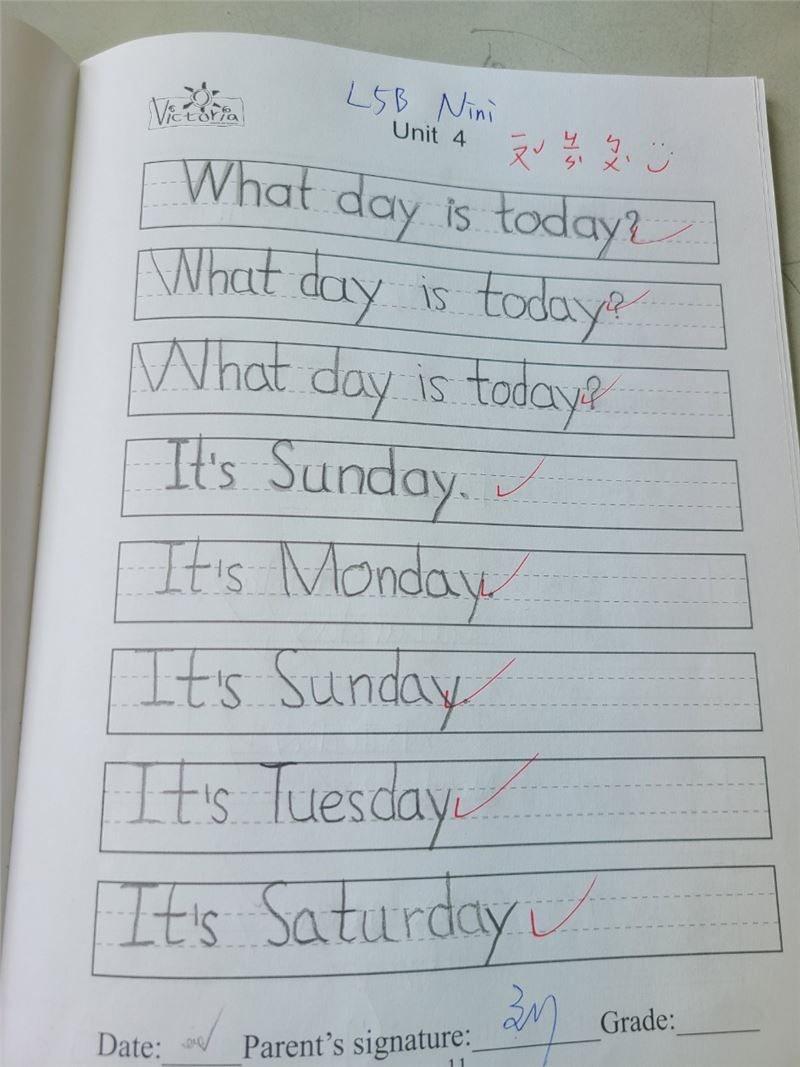 Victoria
L5B Nini
Unit 4
What day is today?
What day is today?
What day is today?
It's Sunday.
It's Monday.
It's Sunday.
It's Tuesday
It's Saturday
Date: Parent's signature: Grade:
11